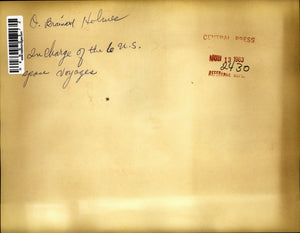 D. Brainard Holmes
In Charge of the 6 U.S.
space voyages
CENTRAL PRESS
NOV 13 1963
2430
REFERENCE